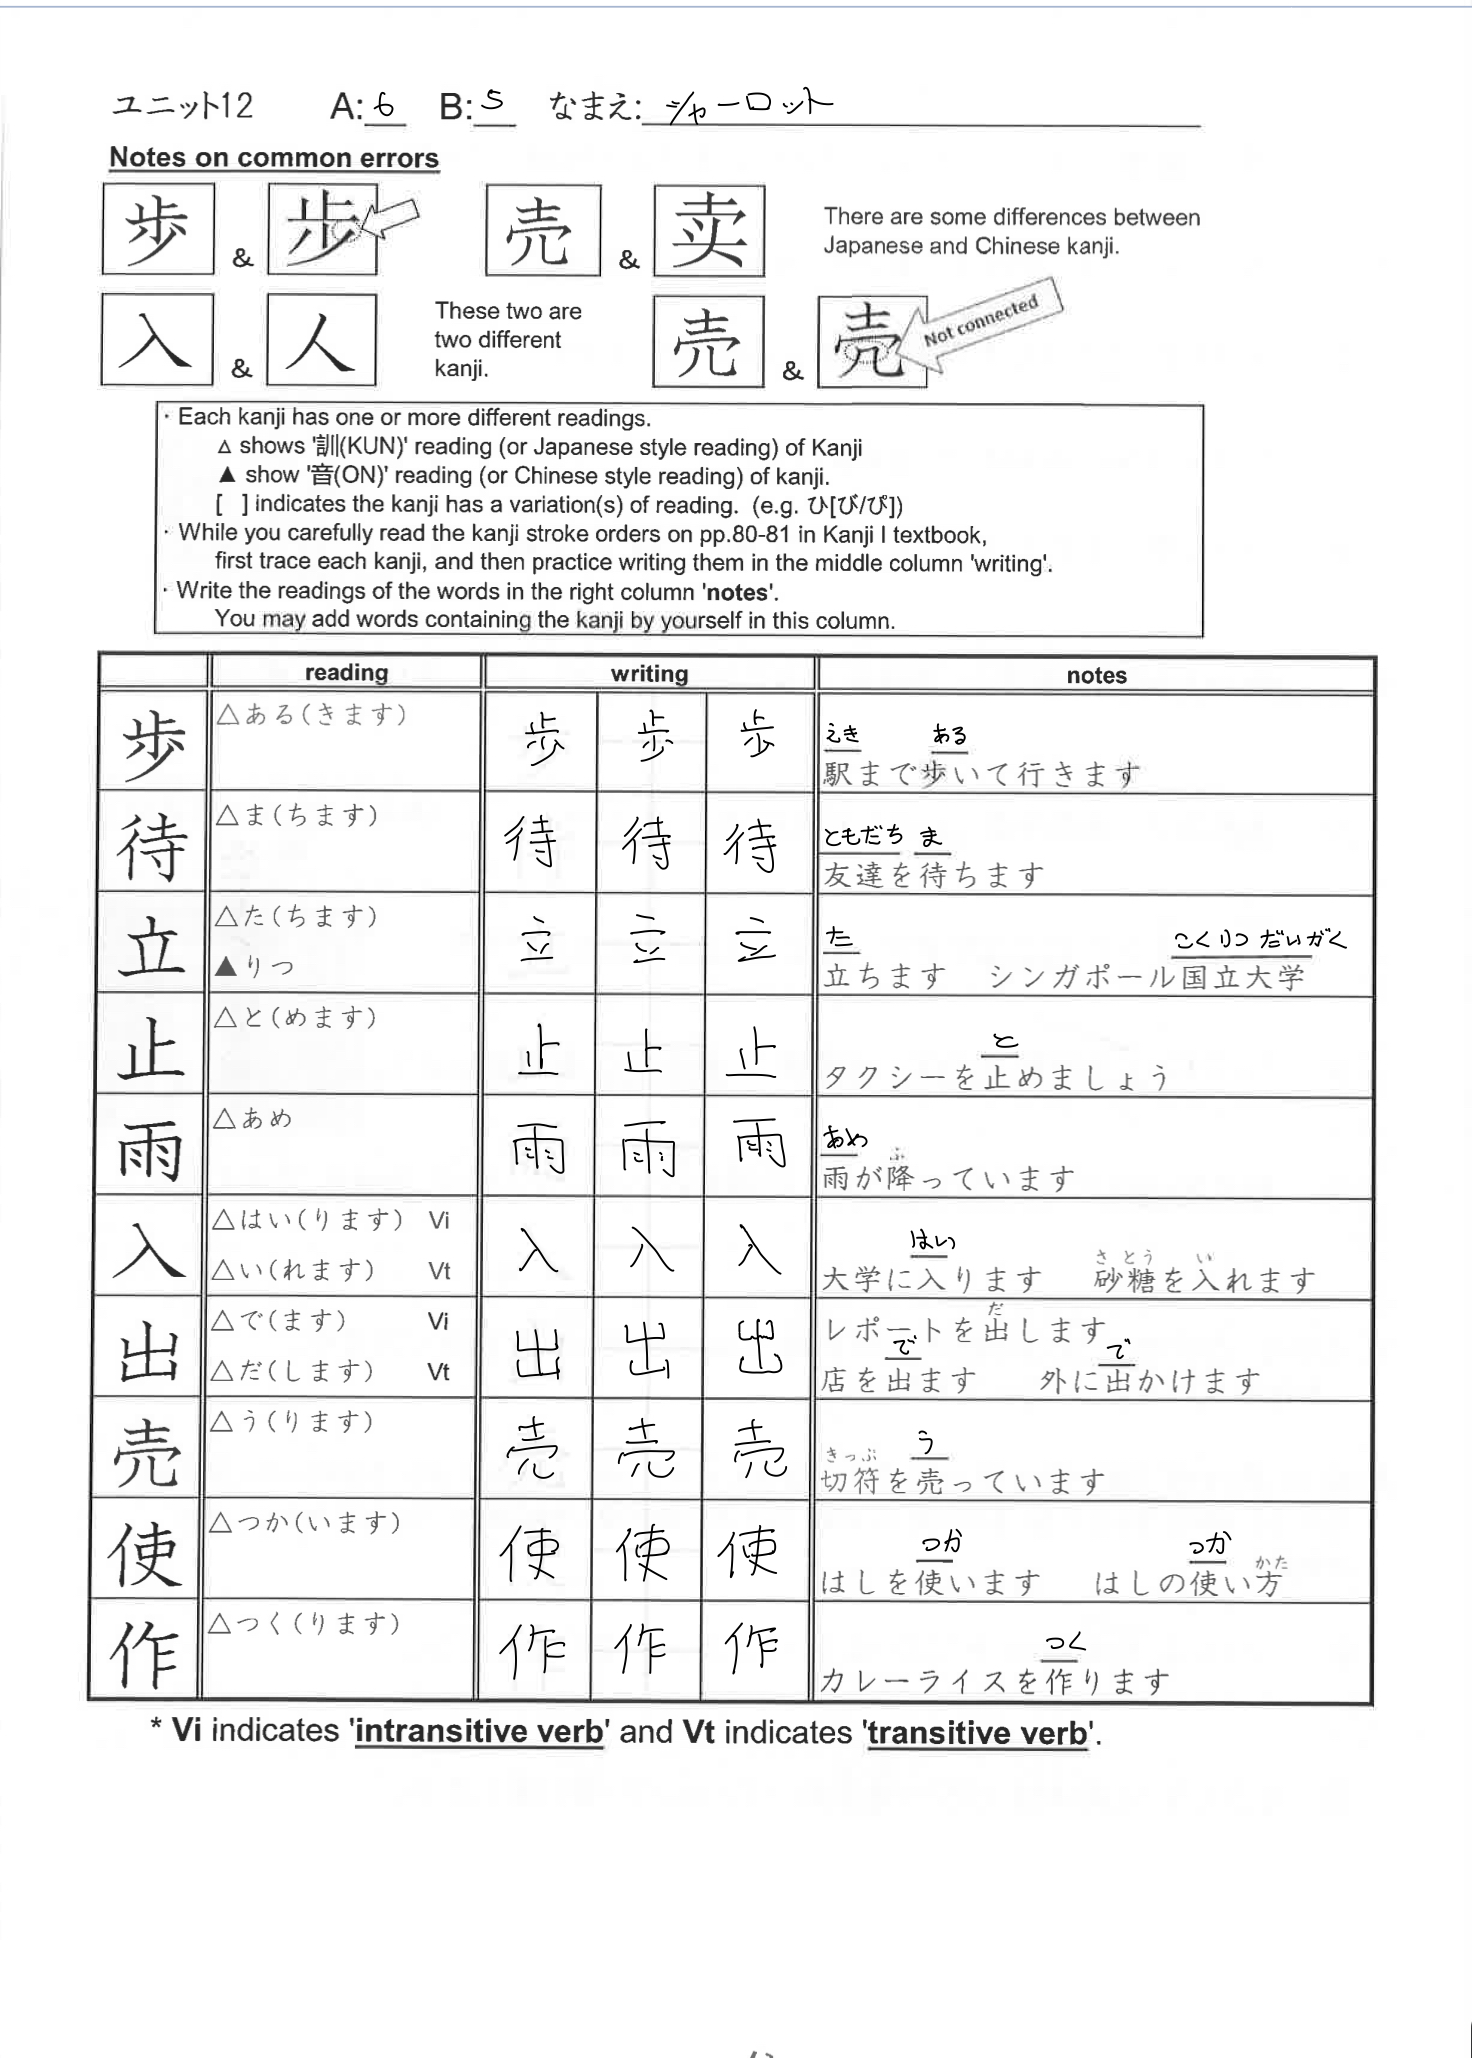 ユニット12 A: 6 B: 5 なまえ: シャーロット
Notes on common errors
歩 & 歩 売 & 卖 There are some differences between
Japanese and Chinese kanji.
入 & 人 These two are
two different
kanji.
売 & 売 Not connected
· Each kanji has one or more different readings.
△ shows '訓(KUN)' reading (or Japanese style reading) of Kanji
▲ show '音(ON)' reading (or Chinese style reading) of kanji.
[ ] indicates the kanji has a variation(s) of reading. (e.g. ひ[び/ぴ])
· While you carefully read the kanji stroke orders on pp.80-81 in Kanji I textbook,
first trace each kanji, and then practice writing them in the middle column 'writing'.
· Write the readings of the words in the right column 'notes'.
You may add words containing the kanji by yourself in this column.
reading writing notes
歩 △ある(きます) 歩 歩 歩
えき ある
駅まで歩いて行きます
待 △ま(ちます) 待 待 待
ともだち ま
友達を待ちます
立 △た(ちます) 立 立 立
▲りつ
た こくりつ だいがく
立ちます シンガポール国立大学
止 △と(めます) 止 止 止
と
タクシーを止めましょう
雨 △あめ 雨 雨 雨
あめ ふ
雨が降っています
入 △はい(ります) Vi 入 入 入
△い(れます) Vt
はい さとう い
大学に入ります 砂糖を入れます
出 △で(ます) Vi 出 出 出
△だ(します) Vt
だ
レポートを出します
で で
店を出ます 外に出かけます
売 △う(ります) 売 売 売
きっぷ う
切符を売っています
使 △つか(います) 使 使 使
つか つか かた
はしを使います はしの使い方
作 △つく(ります) 作 作 作
つく
カレーライスを作ります
* Vi indicates 'intransitive verb' and Vt indicates 'transitive verb'.